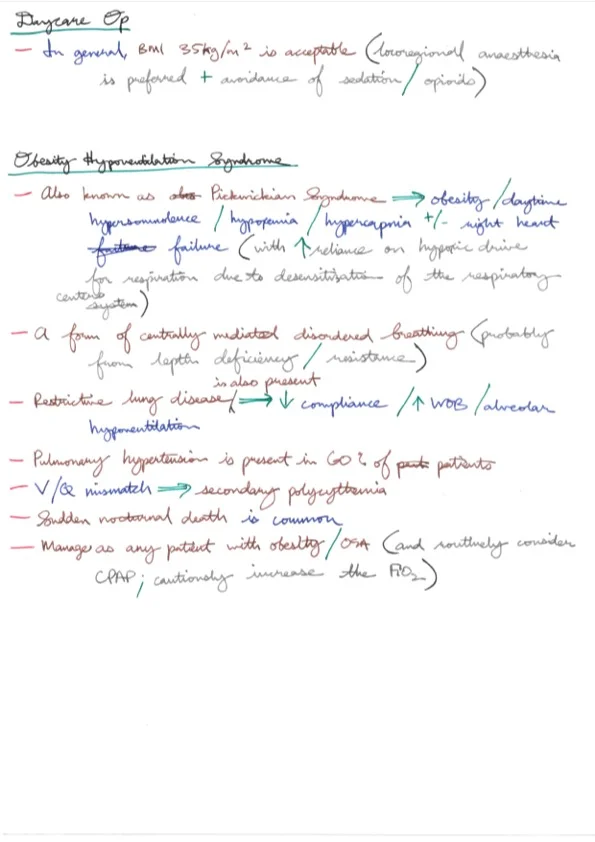 Daycare Op
— In general, BMI 35kg/m² is acceptable (locoregional anaesthesia
is preferred + avoidance of sedation / opioids)
Obesity Hypoventilation Syndrome
— Also known as Pickwickian Syndrome ⟹ obesity / daytime
hypersomnolence / hypoxemia / hypercapnia +/- right heart
failure (with ↑ reliance on hypoxic drive
for respiration due to desensitization of the respiratory
centers system)
— A form of centrally mediated disordered breathing (probably
from leptin deficiency / resistance)
is also present
— Restrictive lung disease ⟹ ↓ compliance / ↑ WOB / alveolar
hypoventilation
— Pulmonary hypertension is present in 60% of patients
— V/Q mismatch ⟹ secondary polycythemia
— Sudden nocturnal death is common
— Manage as any patient with obesity / OSA (and routinely consider
CPAP; cautiously increase the FiO₂)